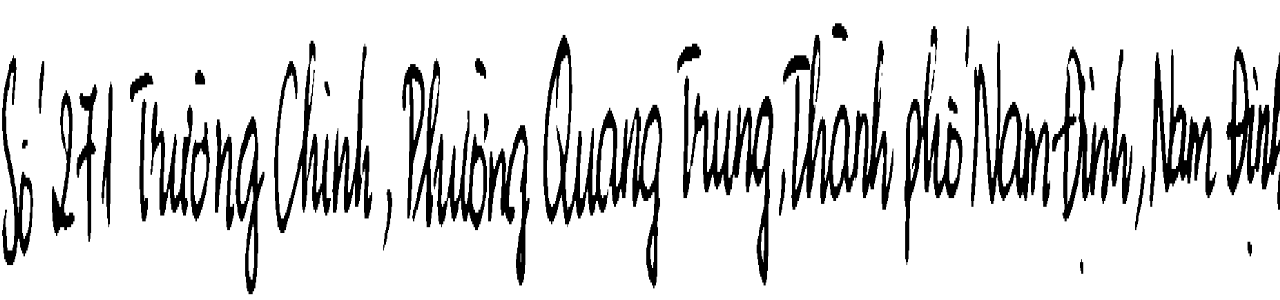 Số 271 Trường Chinh, Phường Quang Trung, Thành phố Nam Định, Nam Định